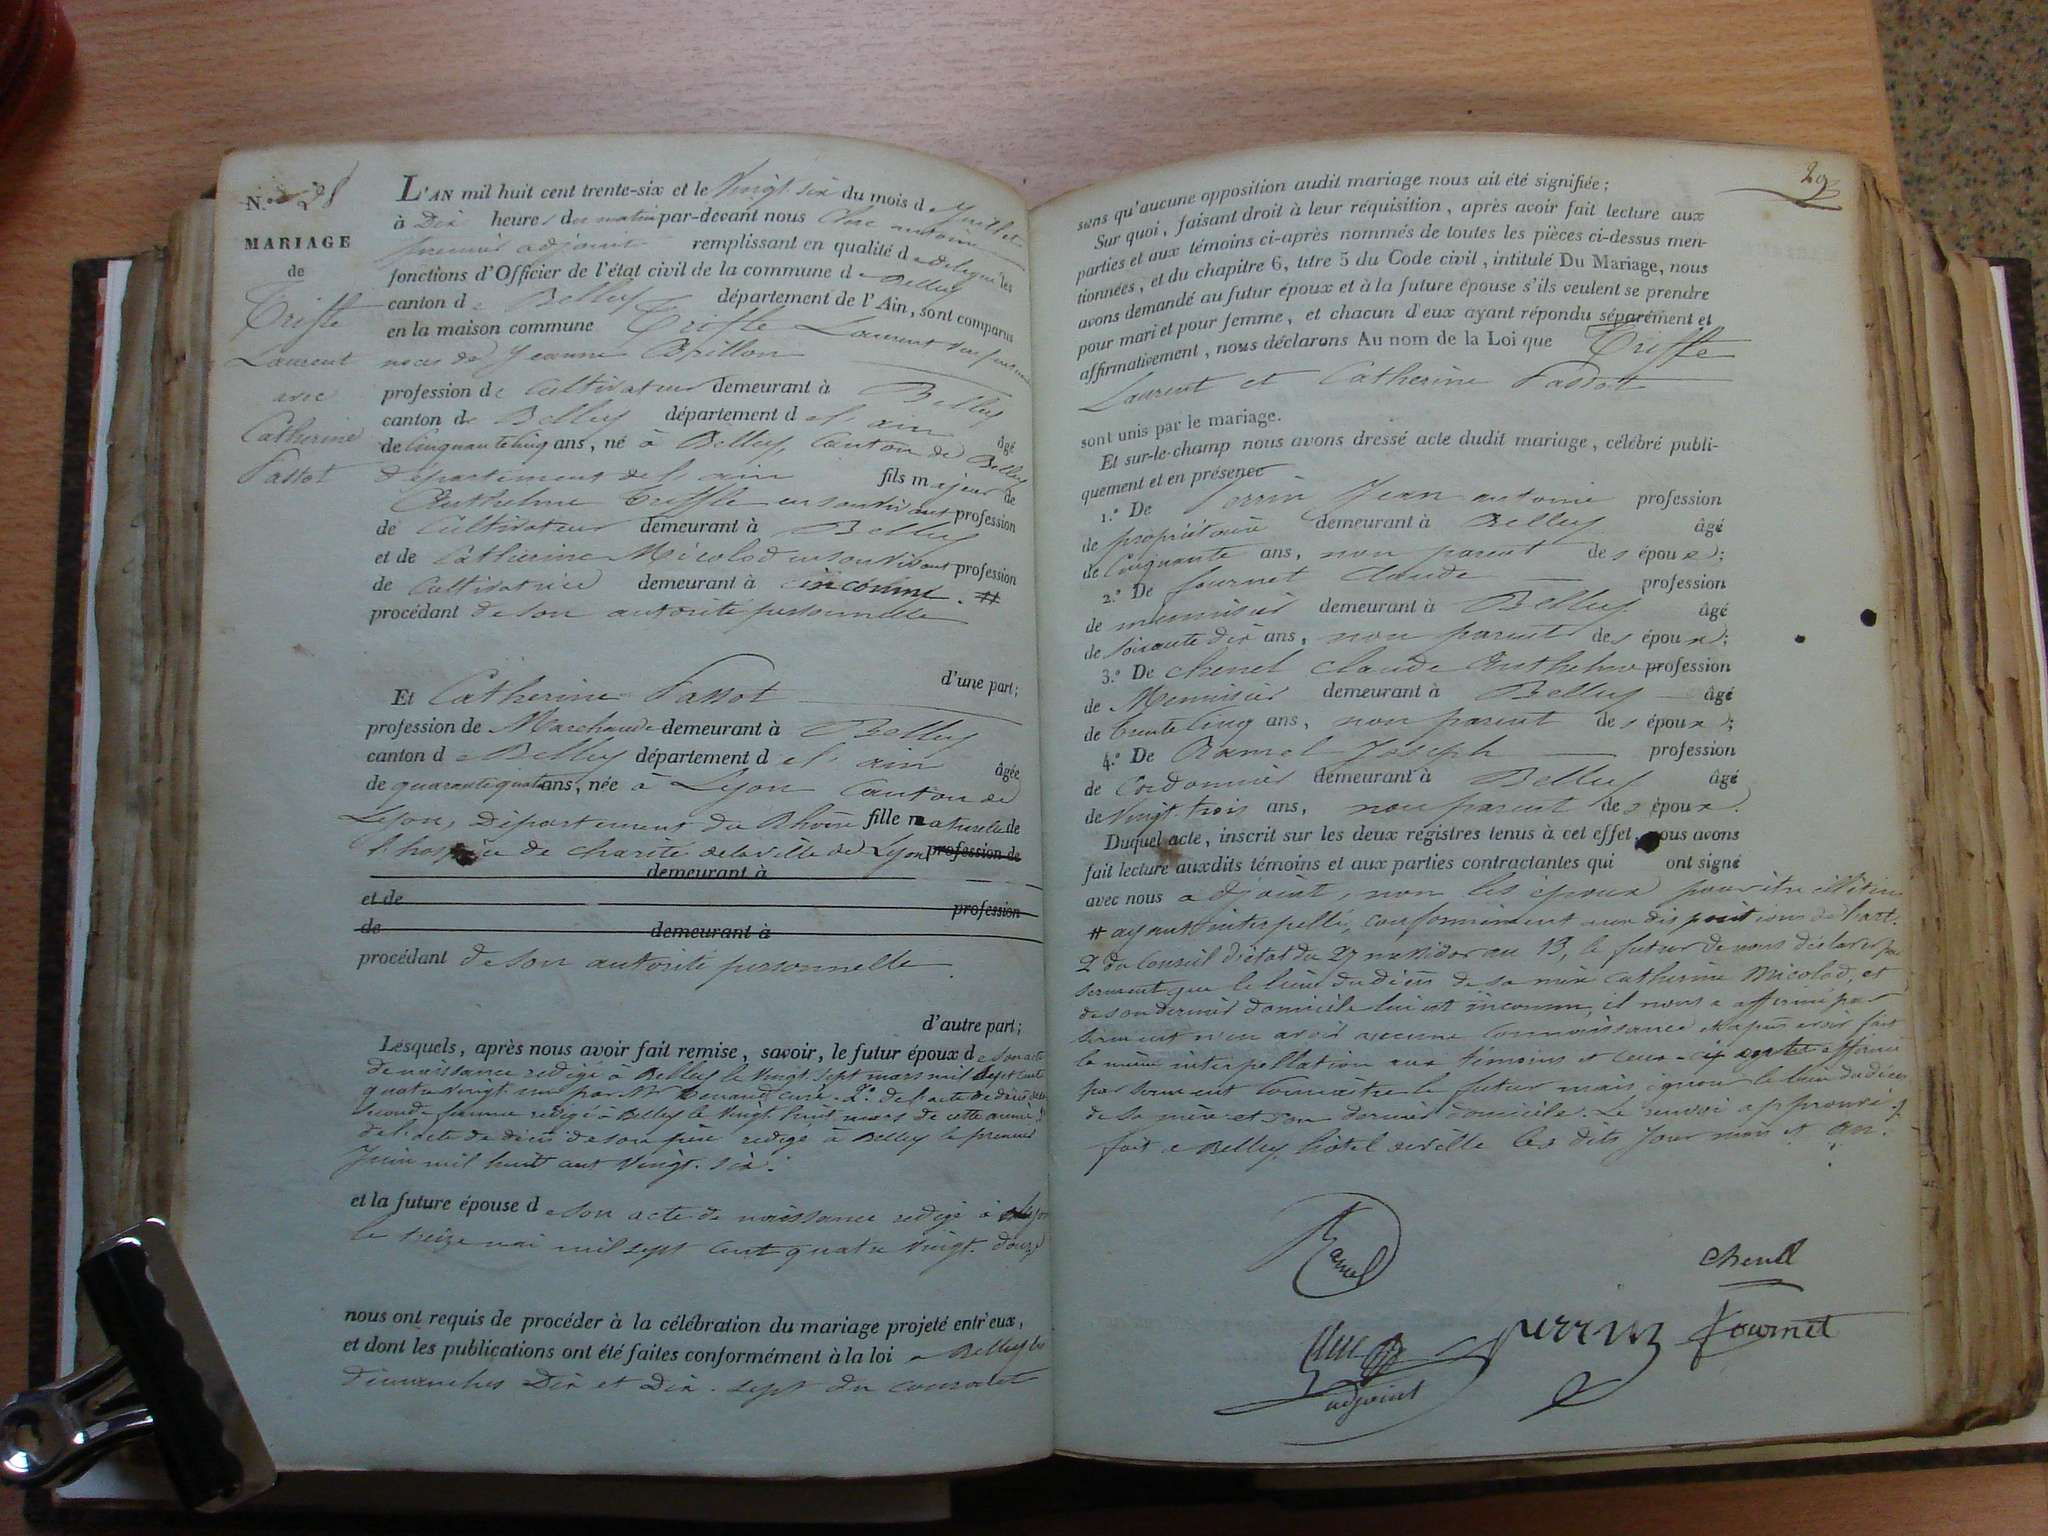 N.º 28
MARIAGE
de
Triffe
Laurent
avec
Catherine
Passot
L'AN mil huit cent trente-six et le vingt six du mois de Juillet
à Dix heures du matin par-devant nous antoine
premier adjoint remplissant en qualité de délégué les
fonctions d'Officier de l'état civil de la commune de Belley
canton de Belley département de l'Ain, sont comparus
en la maison commune Triffe Laurent
de Jeanne Capillon
profession de Cultivateur demeurant à Belley
canton de Belley département de l'ain âgé
de Cinquante cinq ans, né à Belley, Canton de Belley
département de l'ain fils majeur de
Anthelme Triffle en son vivant profession
de Cultivateur demeurant à Belley
et de Catherine Micolod en son vivant profession
de Cultivatrice demeurant à inconnu. #
procédant de son autorité personnelle
d'une part;
Et Catherine Passot
profession de Marchande demeurant à Belley
canton de Belley département de l'ain âgée
de quarante quatre ans, née à Lyon Canton de
Lyon, Département du Rhône fille naturelle de
l'hospice de charité de la ville de Lyon profession de
demeurant à
et de profession
de demeurant à
procédant de son autorité personnelle
d'autre part;
Lesquels, après nous avoir fait remise, savoir, le futur époux de son acte
de naissance redigé à Belley le vingt sept mars mil sept cent
quatre vingt un par Mr Curé. 2.º de l'acte de décès de sa
seconde femme redigé à Belley le vingt huit mars de cette année 3º
de l'acte de décès de son père redigé à Belley le premier
Juin mil huit cent vingt-six.
et la future épouse de son acte de naissance redigé à Lyon
le treize mai mil sept cent quatre vingt-douze
nous ont requis de procéder à la célébration du mariage projeté entr'eux,
et dont les publications ont été faites conformément à la loi à Belley les
dimanches Dix et Dix-sept du courant
29
sans qu'aucune opposition audit mariage nous ait été signifiée;
Sur quoi, faisant droit à leur réquisition, après avoir fait lecture aux
parties et aux témoins ci-après nommés de toutes les pièces ci-dessus men-
tionnées, et du chapitre 6, titre 5 du Code civil, intitulé Du Mariage, nous
avons demandé au futur époux et à la future épouse s'ils veulent se prendre
pour mari et pour femme, et chacun d'eux ayant répondu séparément et
affirmativement, nous déclarons Au nom de la Loi que Triffe
Laurent et Catherine Passot
sont unis par le mariage.
Et sur-le-champ nous avons dressé acte dudit mariage, célébré publi-
quement et en présence
1.º De Perrin Jean antoine profession
de propriétaire demeurant à Belley âgé
de Cinquante ans, non parent des époux;
2.º De fournet Claude profession
de menuisier demeurant à Belley âgé
de soixante dix ans, non parent des époux;
3.º De chenel claude Anthelme profession
de Menuisier demeurant à Belley âgé
de trente cinq ans, non parent des époux;
4.º De Ramel Joseph profession
de Cordonnier demeurant à Belley âgé
de vingt-trois ans, non parent des époux.
Duquel acte, inscrit sur les deux registres tenus à cet effet, nous avons
fait lecture auxdits témoins et aux parties contractantes qui ont signé
avec nous adjoint, non les époux pour être illitérés
# ayant interpellé, conformément aux dispositions de l'art.
2 du Conseil d'état du 27 messidor an 13, le futur de nous déclarer par
serment que le lieu du décès de sa mère Catherine Micolod, et
de son dernier domicile lui est inconnu, il nous a affirmé par
serment n'en avoir aucune connaissance et après avoir fait
la même interpellation aux témoins et ceux-ci affirmé
par serment connaître le futur mais ignorer le lieu du décès
de sa mère et son dernier domicile. Le renvoi approuvé
fait à Belley, hôtel de ville les dits jour mois et an.
Ramel
chenel
perrin
fournet
adjoint